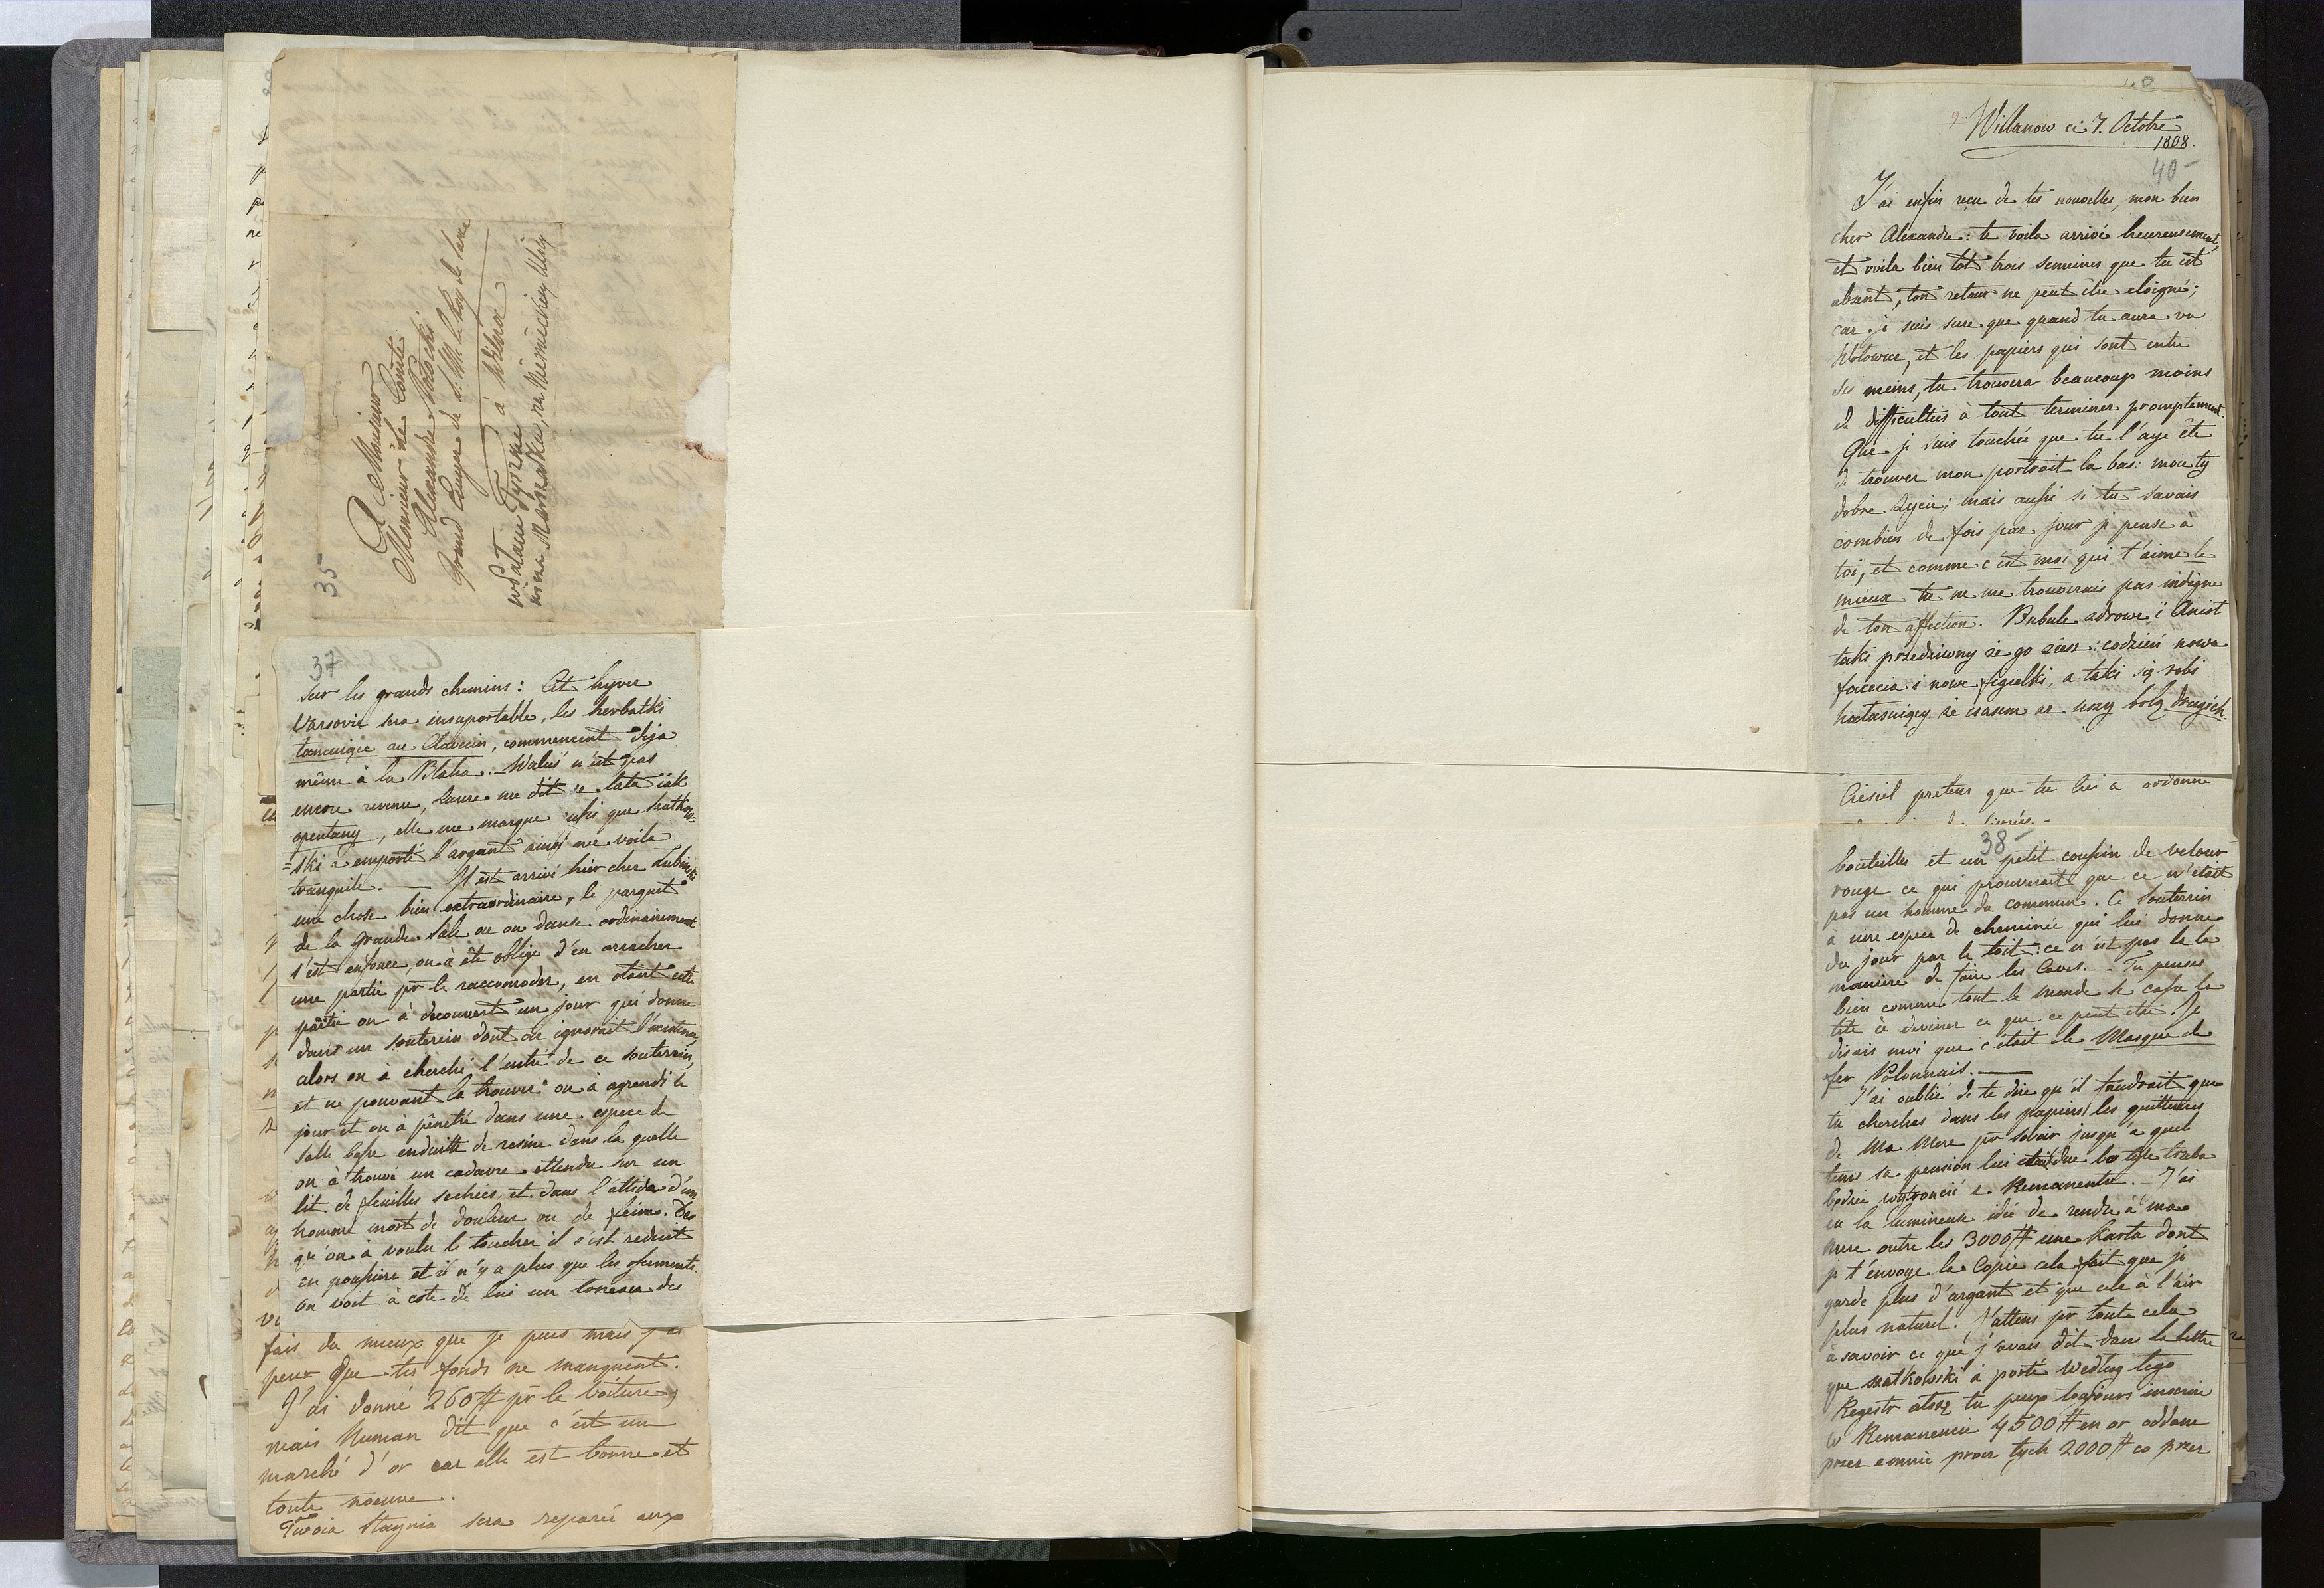 35
A Monsieur
Monsieur le Comte
Alexandre Potocki
Grand Ecuyer de S: M: le Roy de Saxe
à Wilna
w Palacu Tyszkie
wicza Marszałka, na Niemieckiey Ulicy
37
sur les grands chemins: Cet hyver
Varsovie sera insuportable, les herbatki
tancuigce au Clavecin, commencent deja
même à la Blaha. Waluś n'est pas
encore revenu, laure me dit że lata iak
opentany, elle me marque aussi que Szatkow=
=ski a emporté l'argant ainsi me voila
tranquile. — Il est arrivé hier chez Lubinski
une chose bien extraordinaire, le parquet
de la grande Sale ou on danse ordinairement
s'est enfoncé, on à été obligé d'en arracher
une partie pr le raccomoder, en otant cette
partie on à decouvert un jour qui donne
dans un souterein dont on ignorait l'existence,
alors on à cherché l'entré de ce souterrein,
et ne pouvant la trouver on à agrandi le
jour et on à pénétré dans une espece de
Salle basse enduitte de resine dans la quelle
on à trouvé un cadavre ettendu sur un
lit de feuilles sechées, et dans l'attitude d'un
homme mort de douleur ou de feim. Des
qu'on à voulu le toucher il s'est reduit
en poussiere et il n'y a plus que les ossements.
On voit à coté de lui un toneau des
fais du mieux que je puis mais j'ai
peur que tes fonds ne manquent.
J'ai donné 260 # pr le voiture,
mais Numan dit que c'est un
marché d'or car elle est bonne et
toute noeuve.
Twoia Staynia sera reparée aux
Willanow ce 7. Octobre
1808.
40
J'ai enfin reçu de tes nouvelles, mon bien
cher Alexandre: te voila arrivé heureusement,
et voila bien tot trois semaines que tu est
absent, ton retour ne peut être eloigné;
car je suis sure que quand tu aura vu
Wolowicz, et les papiers qui sont entre
ses meins, tu trouvera beaucoup moins
de difficultées à tout terminer promptement.
Que je suis touchée que tu l'aye été
de trouver mon portrait la bas: moie ty
dobre Zycie; mais aussi si tu savais
combien de fois par jour je pense à
toi, et comme c'est moi qui t'aime le
mieux tu ne me trouverais pas indigne
de ton affection. Bubule zdrowe, i Aniot
taki przedziwny że go ziesz: codzień nowa
facecia i nowe figielki, a taki się robi
hatasuigcy że czasem az uszy bolą drugich.
Cresiel pretens que tu lui a ordonné
38
bouteilles et un petit coussin de velour
rouge ce qui prouverait que ce n'était
pas un homme du commun. Ce Souterrin
à une espece de cheminée qui lui donne
du jour par le toit: ce n'est pas la la
maniere de faire les Caves. — Tu penses
bien comme tout le monde se casse la
tete à deviner ce que ce peut etre. Je
disais moi que c'était le Masque de
fer Polonnais. —
J'ai oublié de te dire qu'il faudrait que
tu cherches dans les papiers les quittances
de Ma Mere pr savoir jusqu'à quel
tems sa pension lui était due bo tyle trzeba
bedzie wytroncić z Remanentu. — J'ai
eu la lumineuse idée de rendre à ma
mere outre les 3000 # une Karta dont
je t'envoye la Copie cela fait que je
garde plus d'argant et que cela à l'air
plus naturel. J'attens pr tout cela
à savoir ce que j'avais dit dans la lettre
que Szatkowski à porté. Wedlug tego
Regestr tu peux toujours inscrire
w Remanencie 4500 # en or oddane
przez emnie procz tych 2000 # co przez